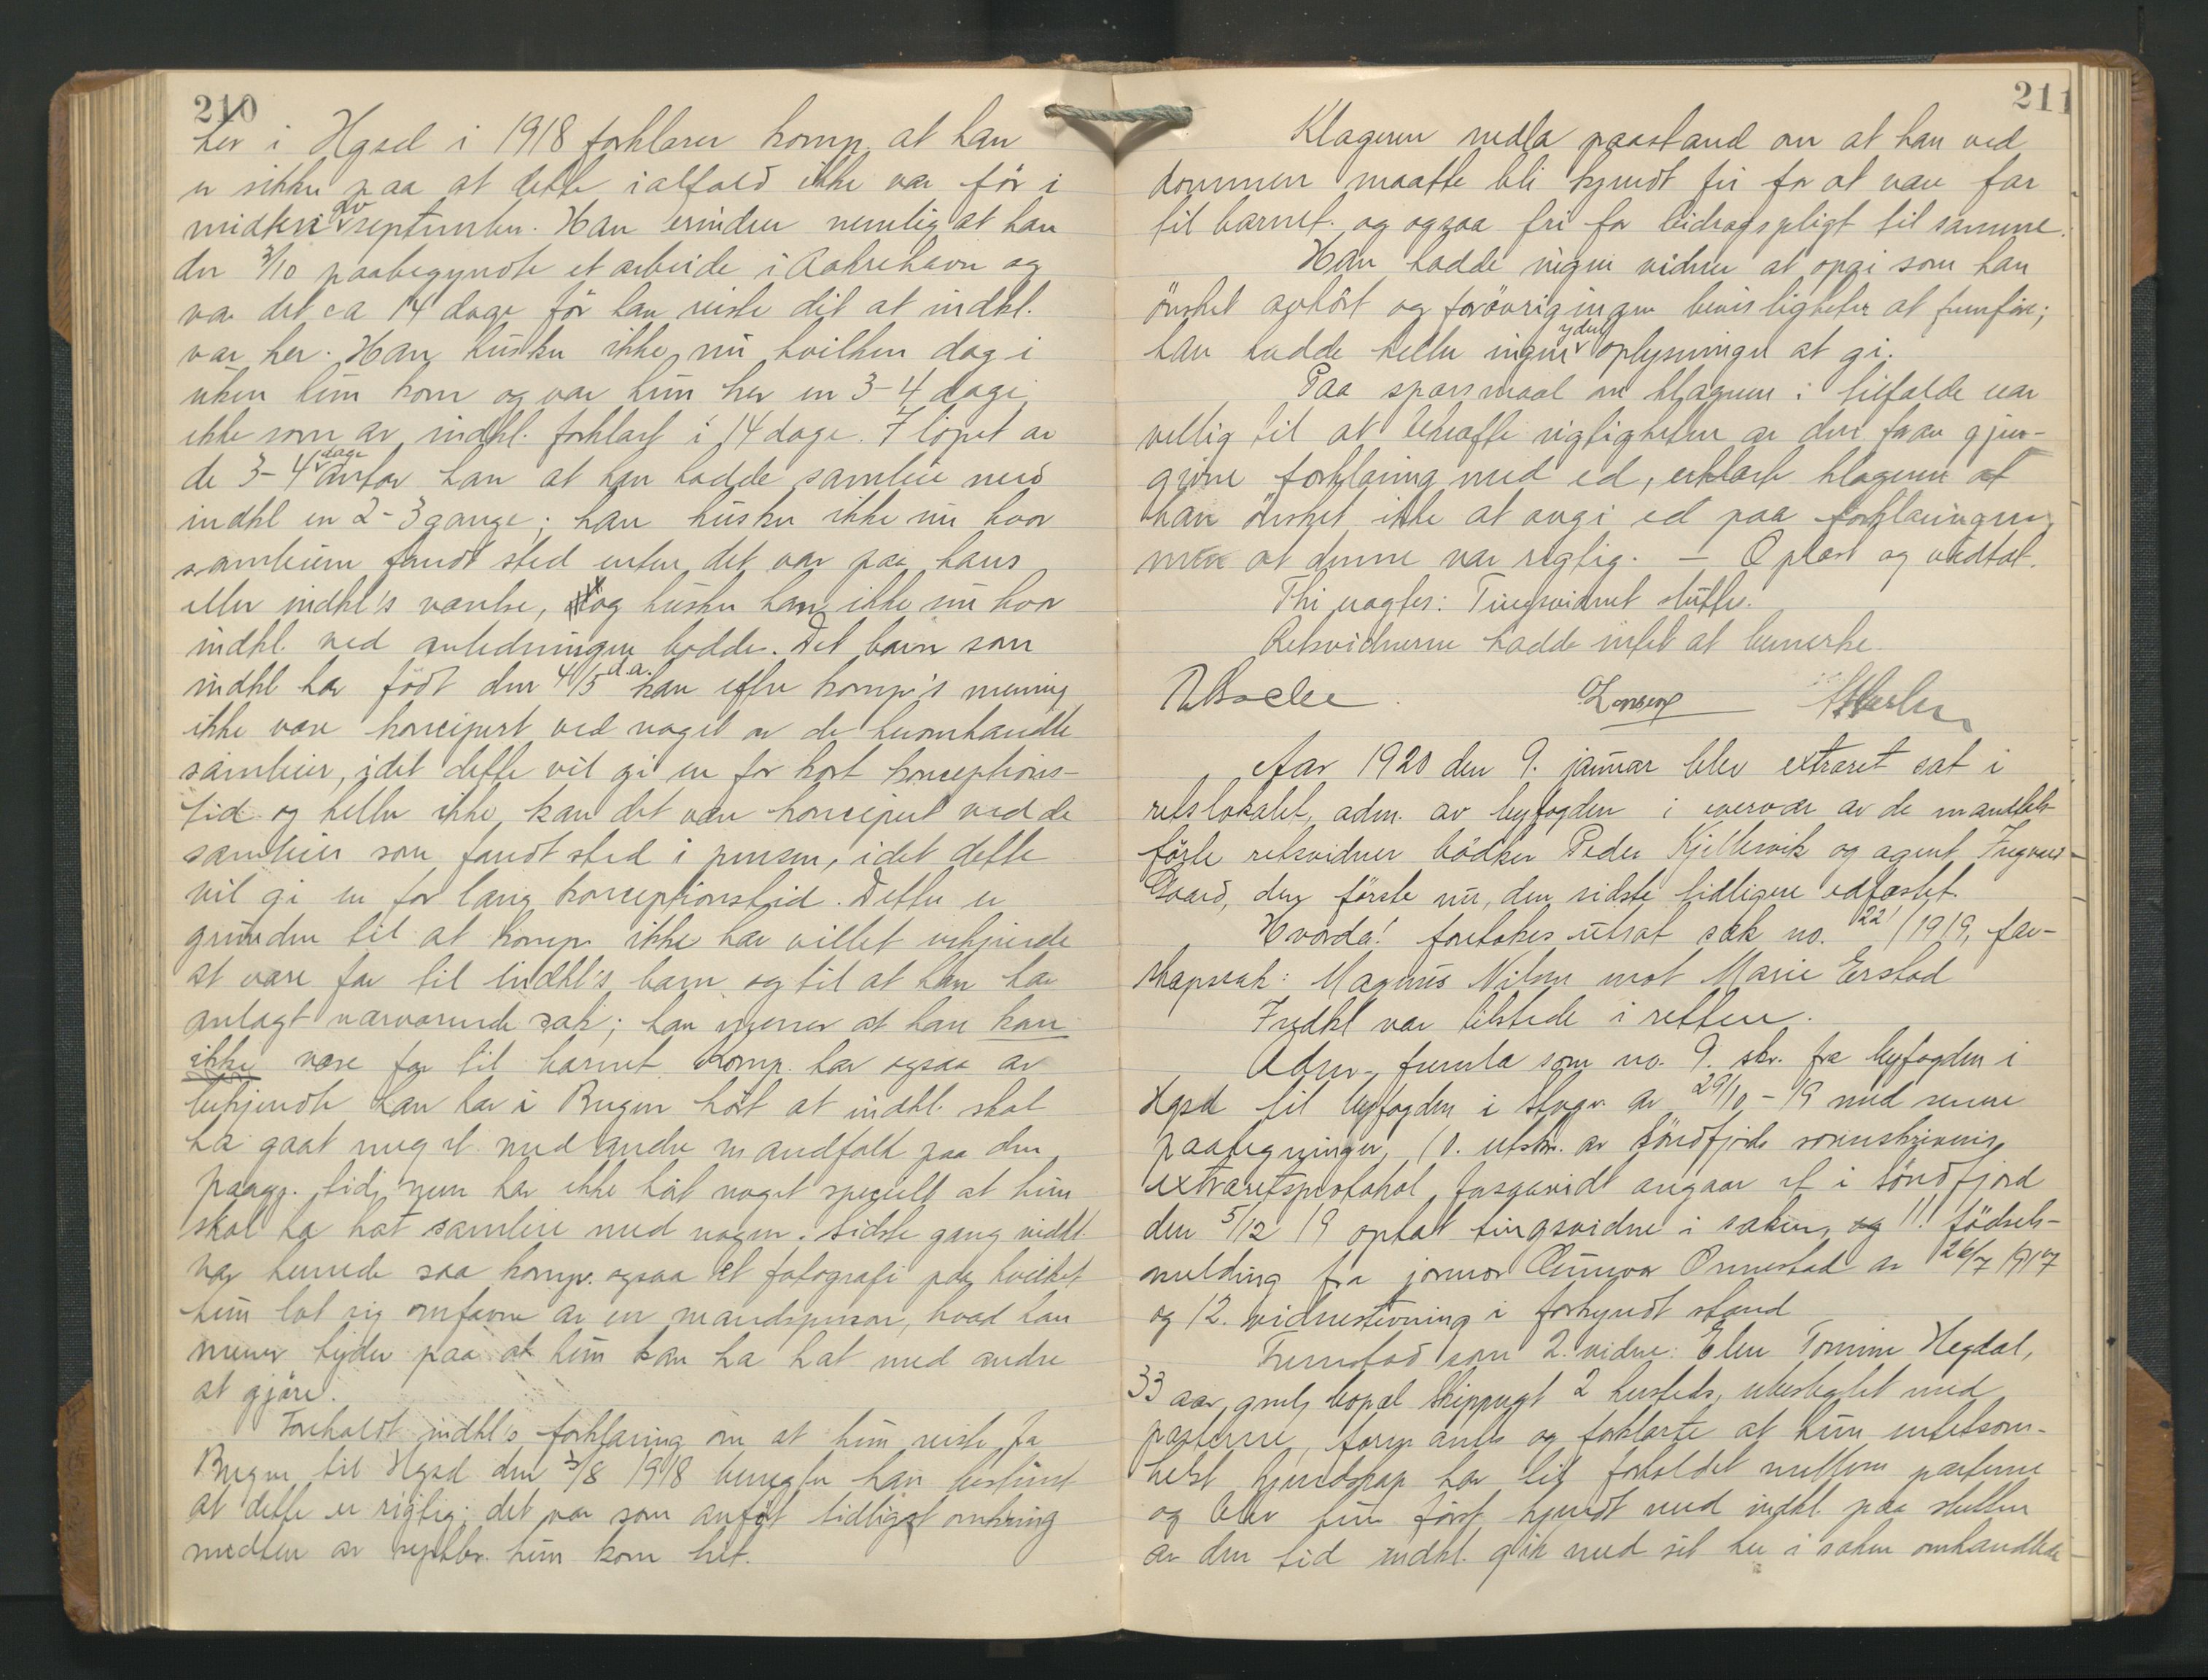 210
her i Hgsd i 1918 forklarer komp. at han
er sikker paa at dette ialfald ikke var før i
midten av september. Han erindrer nemlig at han
den 3/10 paabegyndte et arbeide i Aakrehavn og
var det ca 14 dage før han reiste dit at indkl.
var her. Han husker ikke nu hvilken dag i
uken hun kom og var hun her en 3-4 dage,
ikke som av indkl. forklart i 14 dage. I løpet av
de 3-4 dage antar han at han hadde samleie med
indkl en 2-3 gange; han husker ikke nu hvor
samleien fandt sted enten det var paa hans
eller indkl's værelse, og husker han ikke nu hvor
indkl. ved anledningen bodde. Det barn som
indkl har født den 4/5 d.a. kan efter komp's mening
ikke være koncipert ved noget av de heromhandlte
samleier, idet dette vil gi en for kort konceptions-
tid og heller ikke kan det være koncipert ved de
samleier som fandt sted i pinsen, idet dette
vil gi en for lang konceptionstid. Dette er
grunden til at komp. ikke har villet vedkjende
at være far til indkl's barn og til at han har
anlagt nærværende sak; han mener at han kan
ikke være far til barnet. Komp. har ogsaa av
bekjendte han har i Bergen hørt at indkl. skal
ha gaat meget med andre mandfolk paa den
paagj. tid, men har ikke hørt noget specielt at hun
skal ha hat samleie med nogen. Sidste gang indkl.
var hernede saa komp. ogsaa et fotografi paa hvilket
hun lot sig omfavne av en mandsperson, hvad han
mener tyder paa at hun kan ha hat med andre
at gjøre.
Foreholdt indkl's forklaring om at hun reiste fra
Bergen til Hgsd den 3/8 1918 benegter han bestemt
at dette er rigtig; det var som anført tidligst omkring
midten av septbr. hun kom hit.
211
Klageren nedla paastand om at han ved
dommen maatte bli kjendt fri for at være far
til barnet og ogsaa fri for bidragspligt til samme.
Han hadde ingen vidner at opgi som han
ønsket avhørt og forøvrig ingen bevisligheter at fremføre;
han hadde heller ingen yderl. oplysninger at gi.
Paa spørsmaal om klageren i tilfælde var
villig til at bekræfte rigtigheten av den foran gjen-
givne forklaring med ed, erklærte klageren at
han ønsket ikke at avgi ed paa forklaringen,
men at denne var rigtig. – Oplæst og vedtat.
Thi vagtes: Tingsvidnet sluttes.
Retsvidnerne hadde intet at bemerke.
Aar 1920 den 9. januar blev extraret sat i
retslokalet, adm. av byfogden i overvær av de mandtals-
førte retsvidner bødker Peder Kjellesvik og agent Ingvald
Gaard, den første nu, den sidste tidligere edfæstet.
Hvorda! foretokes utsat sak no. 22/1919, far-
skapssak: Magnus Nilsen mot Marie Erstad
Indkl var tilstede i retten.
Adm. fremla som no. 9. skr. fra byfogden i
Hgsd til byfogden i Stvgr. av 29/10-19 med senere
paategninger, 10. utskr. av Søndfjords sorenskriveris
extraretsprotokol forsaavidt angaar et i Søndfjord
den 5/12 19 optat tingsvidne i saken, og 11. fødsels-
melding fra jormor Gunvor Ornestad av 26/7 1917
og 12. vidnestevning i forkyndt stand
Fremstod som 2. vidne: Elen Tomine Hegdal,
33 aar, gml, bopæl Skippergt 2 hersteds, ubeslegtet med
parterne, form. anles og forklarte at hun intetsom-
helst kjendskap har til forholdet mellem parterne
og blev hun først kjendt med indkl. paa slutten
av den tid indkl. gik med sit her i saken omhandlede